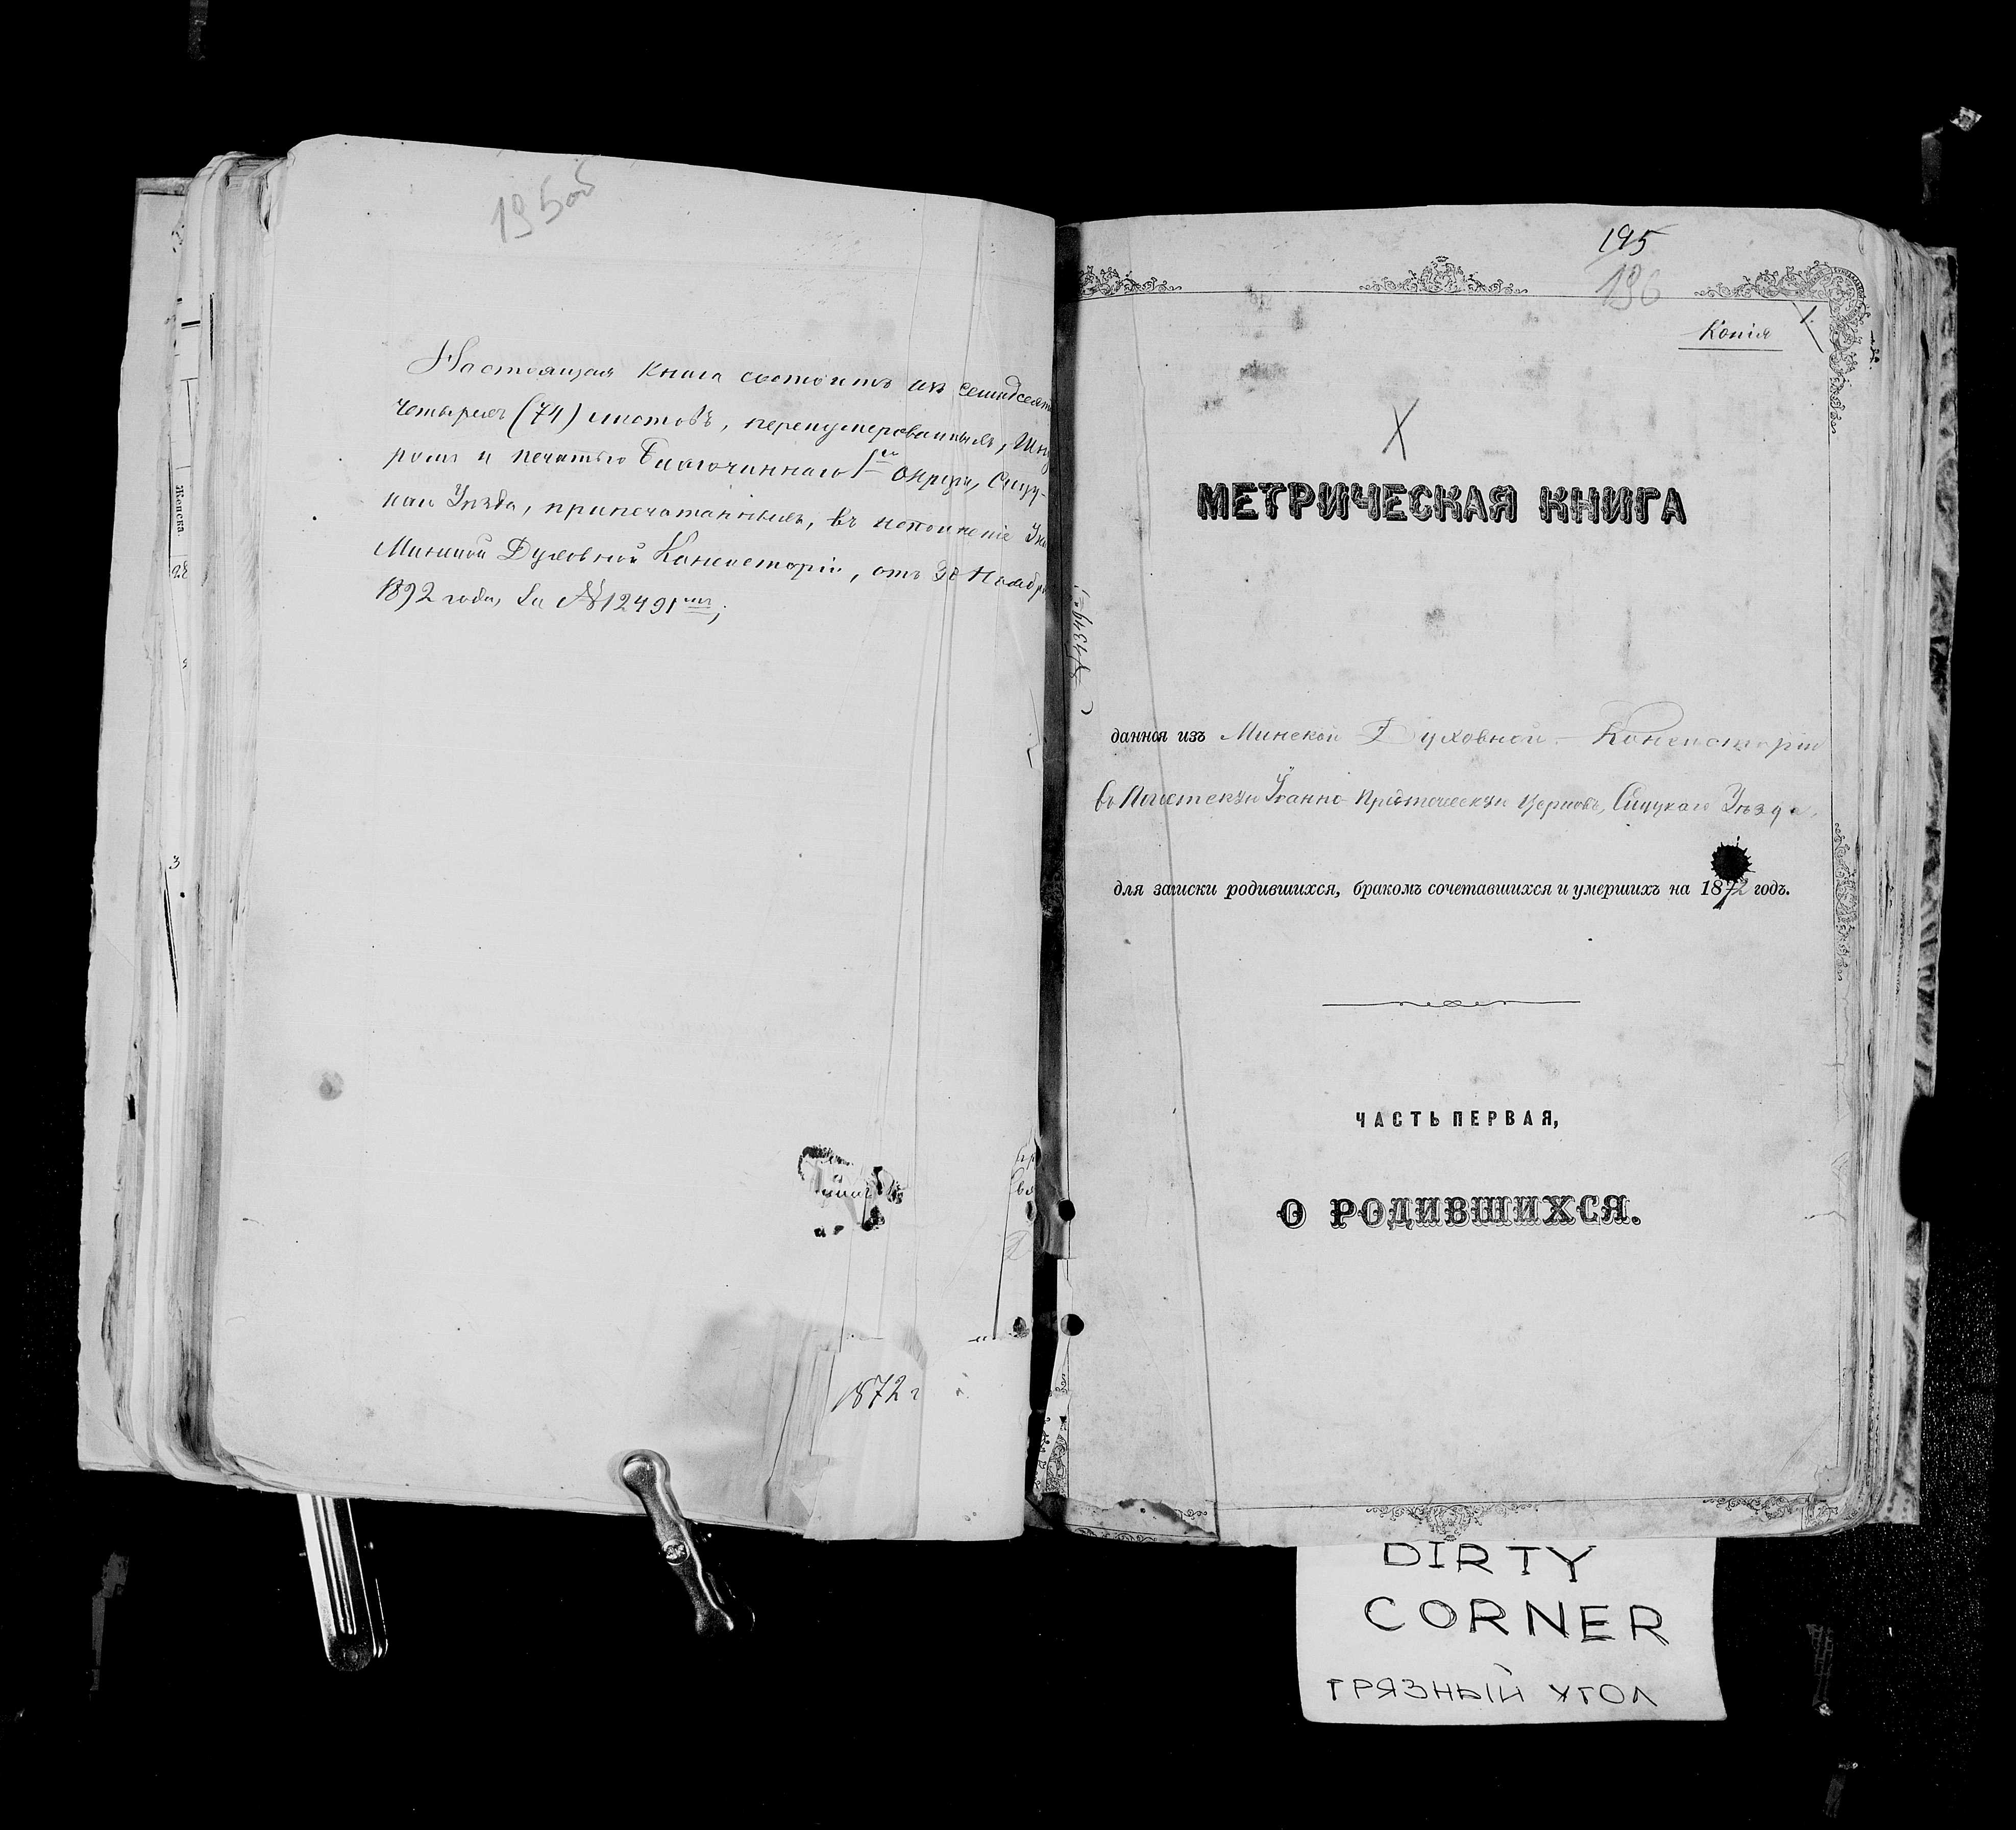 195об
Настоящая книга состоитъ изъ семидесяти
четырехъ (74) листовъ, перенумерованныхъ, шну
ромъ и печатью Благочиннаго 1го округа, Слуц-
каго Уѣзда, припечатанныхъ, въ исполненіе Ука
Минской Духовной Консисторіи, отъ 30 Ноября
1892 года, за № 12491мъ;
1872 г
Женска
28
3
195
196
Копія
1.
X
МЕТРИЧЕСКАЯ КНИГА
данная изъ Минской Духовной Консисторіи
въ Іоанно Предтеческую церковь, Слуцкаго Уѣзда,
для записки родившихся, бракомъ сочетавшихся и умершихъ на 1872 годъ.
ЧАСТЬ ПЕРВАЯ,
О РОДИВШИХСЯ.
DIRTY
CORNER
ГРЯЗНЫЙ УГОЛ